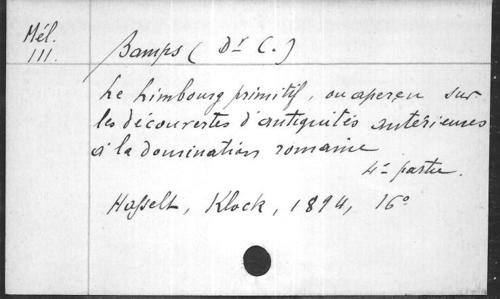 Mél.
111.
Bamps (Dr C.)
Le Limbourg primitif, ou aperçu sur
les découvertes d'antiquités antérieures
à la domination romaine
4e partie.
Hasselt, Klock, 1894, 16°